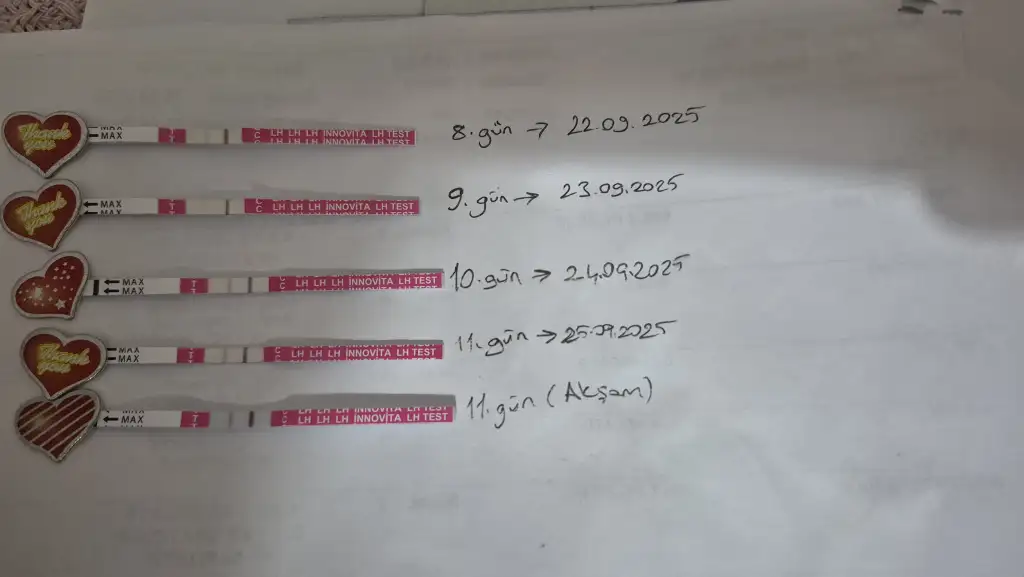 Thank you MAX MAX T T C C LH LH LH INNOVITA LH TEST LH LH LH INNOVITA LH TEST 8. gün → 22.09.2025
Thank you MAX MAX T T C C LH LH LH INNOVITA LH TEST 9. gün → 23.09.2025
MAX MAX T T C C LH LH LH INNOVITA LH TEST 10. gün → 24.09.2025
Thank you MAX MAX T T C C LH LH LH INNOVITA LH TEST 11. gün → 25.09.2025
MAX T T C C LH LH LH INNOVITA LH TEST LH LH LH INNOVITA LH TEST 11. gün (Akşam)